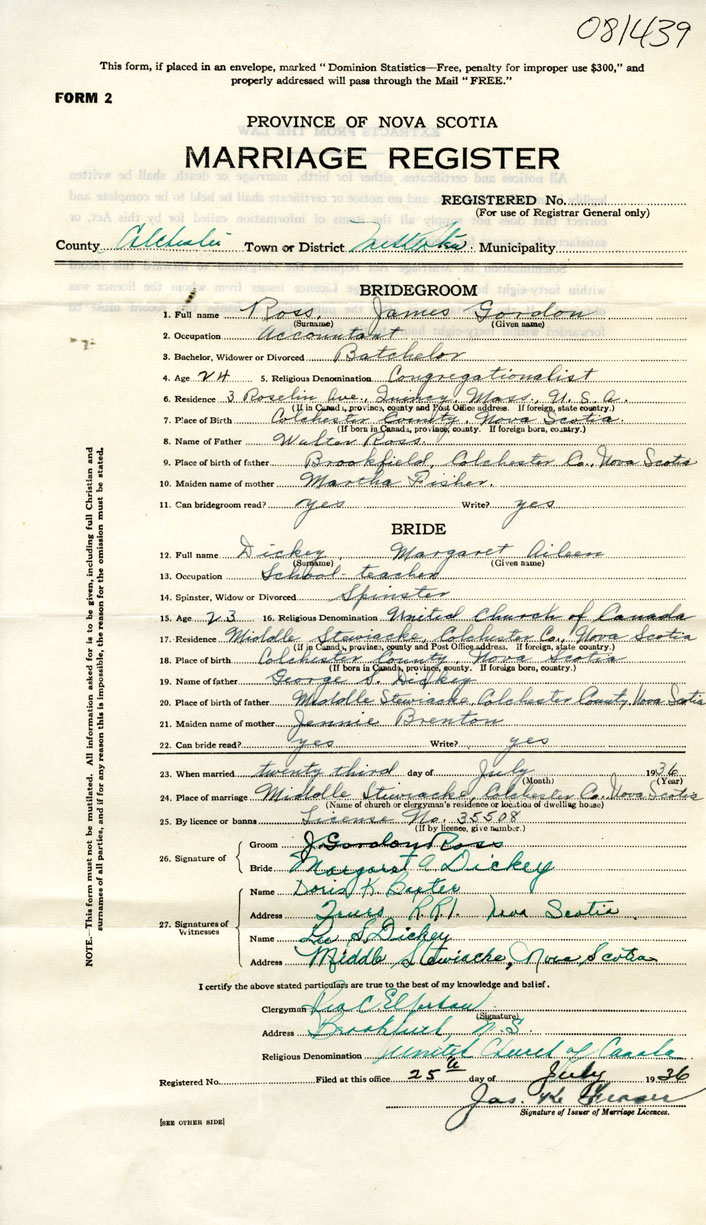 081439
This form, if placed in an envelope, marked "Dominion Statistics—Free, penalty for improper use $300," and
properly addressed will pass through the Mail "FREE."
FORM 2
PROVINCE OF NOVA SCOTIA
MARRIAGE REGISTER
REGISTERED No.
(For use of Registrar General only)
County Colchester Town or District Municipality
BRIDEGROOM
1. Full name Ross, James Gordon
(Surname) (Given name)
2. Occupation Accountant
3. Bachelor, Widower or Divorced Batchelor
4. Age 24 5. Religious Denomination Congregationalist
6. Residence 3 Roselin Ave., Quincy, Mass., U.S.A.
(If in Canada, province, county and Post Office address. If foreign, state country.)
7. Place of Birth Colchester County, Nova Scotia
(If born in Canada, province, county. If foreign born, country.)
8. Name of Father Walter Ross.
9. Place of birth of father Brookfield, Colchester Co., Nova Scotia
10. Maiden name of mother Martha Fisher.
11. Can bridegroom read? yes Write? yes
BRIDE
12. Full name Dickey, Margaret Aileen
(Surname) (Given name)
13. Occupation School-teacher
14. Spinster, Widow or Divorced Spinster
15. Age 23 16. Religious Denomination United Church of Canada
17. Residence Middle Stewiacke, Colchester Co., Nova Scotia
(If in Canada, province, county and Post Office address. If foreign, state country.)
18. Place of birth Colchester County, Nova Scotia
(If born in Canada, province, county. If foreign born, country.)
19. Name of father George S. Dickey
20. Place of birth of father Middle Stewiacke, Colchester County, Nova Scotia
21. Maiden name of mother Jennie Brenton
22. Can bride read? yes Write? yes
23. When married twenty third day of July 1936
(Month) (Year)
24. Place of marriage Middle Stewiacke, Colchester Co., Nova Scotia
(Name of church or clergyman's residence or location of dwelling house)
25. By licence or banns License No. 35508
(If by licence, give number.)
26. Signature of Groom J Gordon Ross
Bride Margaret A Dickey
27. Signatures of Witnesses
Name Doris K. Baxter
Address Truro R.R.1. Nova Scotia
Name S. Dickey
Address Middle Stewiacke, Nova Scotia
I certify the above stated particulars are true to the best of my knowledge and belief.
Clergyman
(Signature)
Address Brookfield, N.S.
Religious Denomination United Church of Canada
Registered No. Filed at this office 25th day of July 1936
Jas.
Signature of Issuer of Marriage Licences.
[SEE OTHER SIDE]
NOTE.—This form must not be mutilated. All information asked for is to be given, including full Christian and
surnames of all parties, and if for any reason this is impossible, the reason for the omission must be stated.